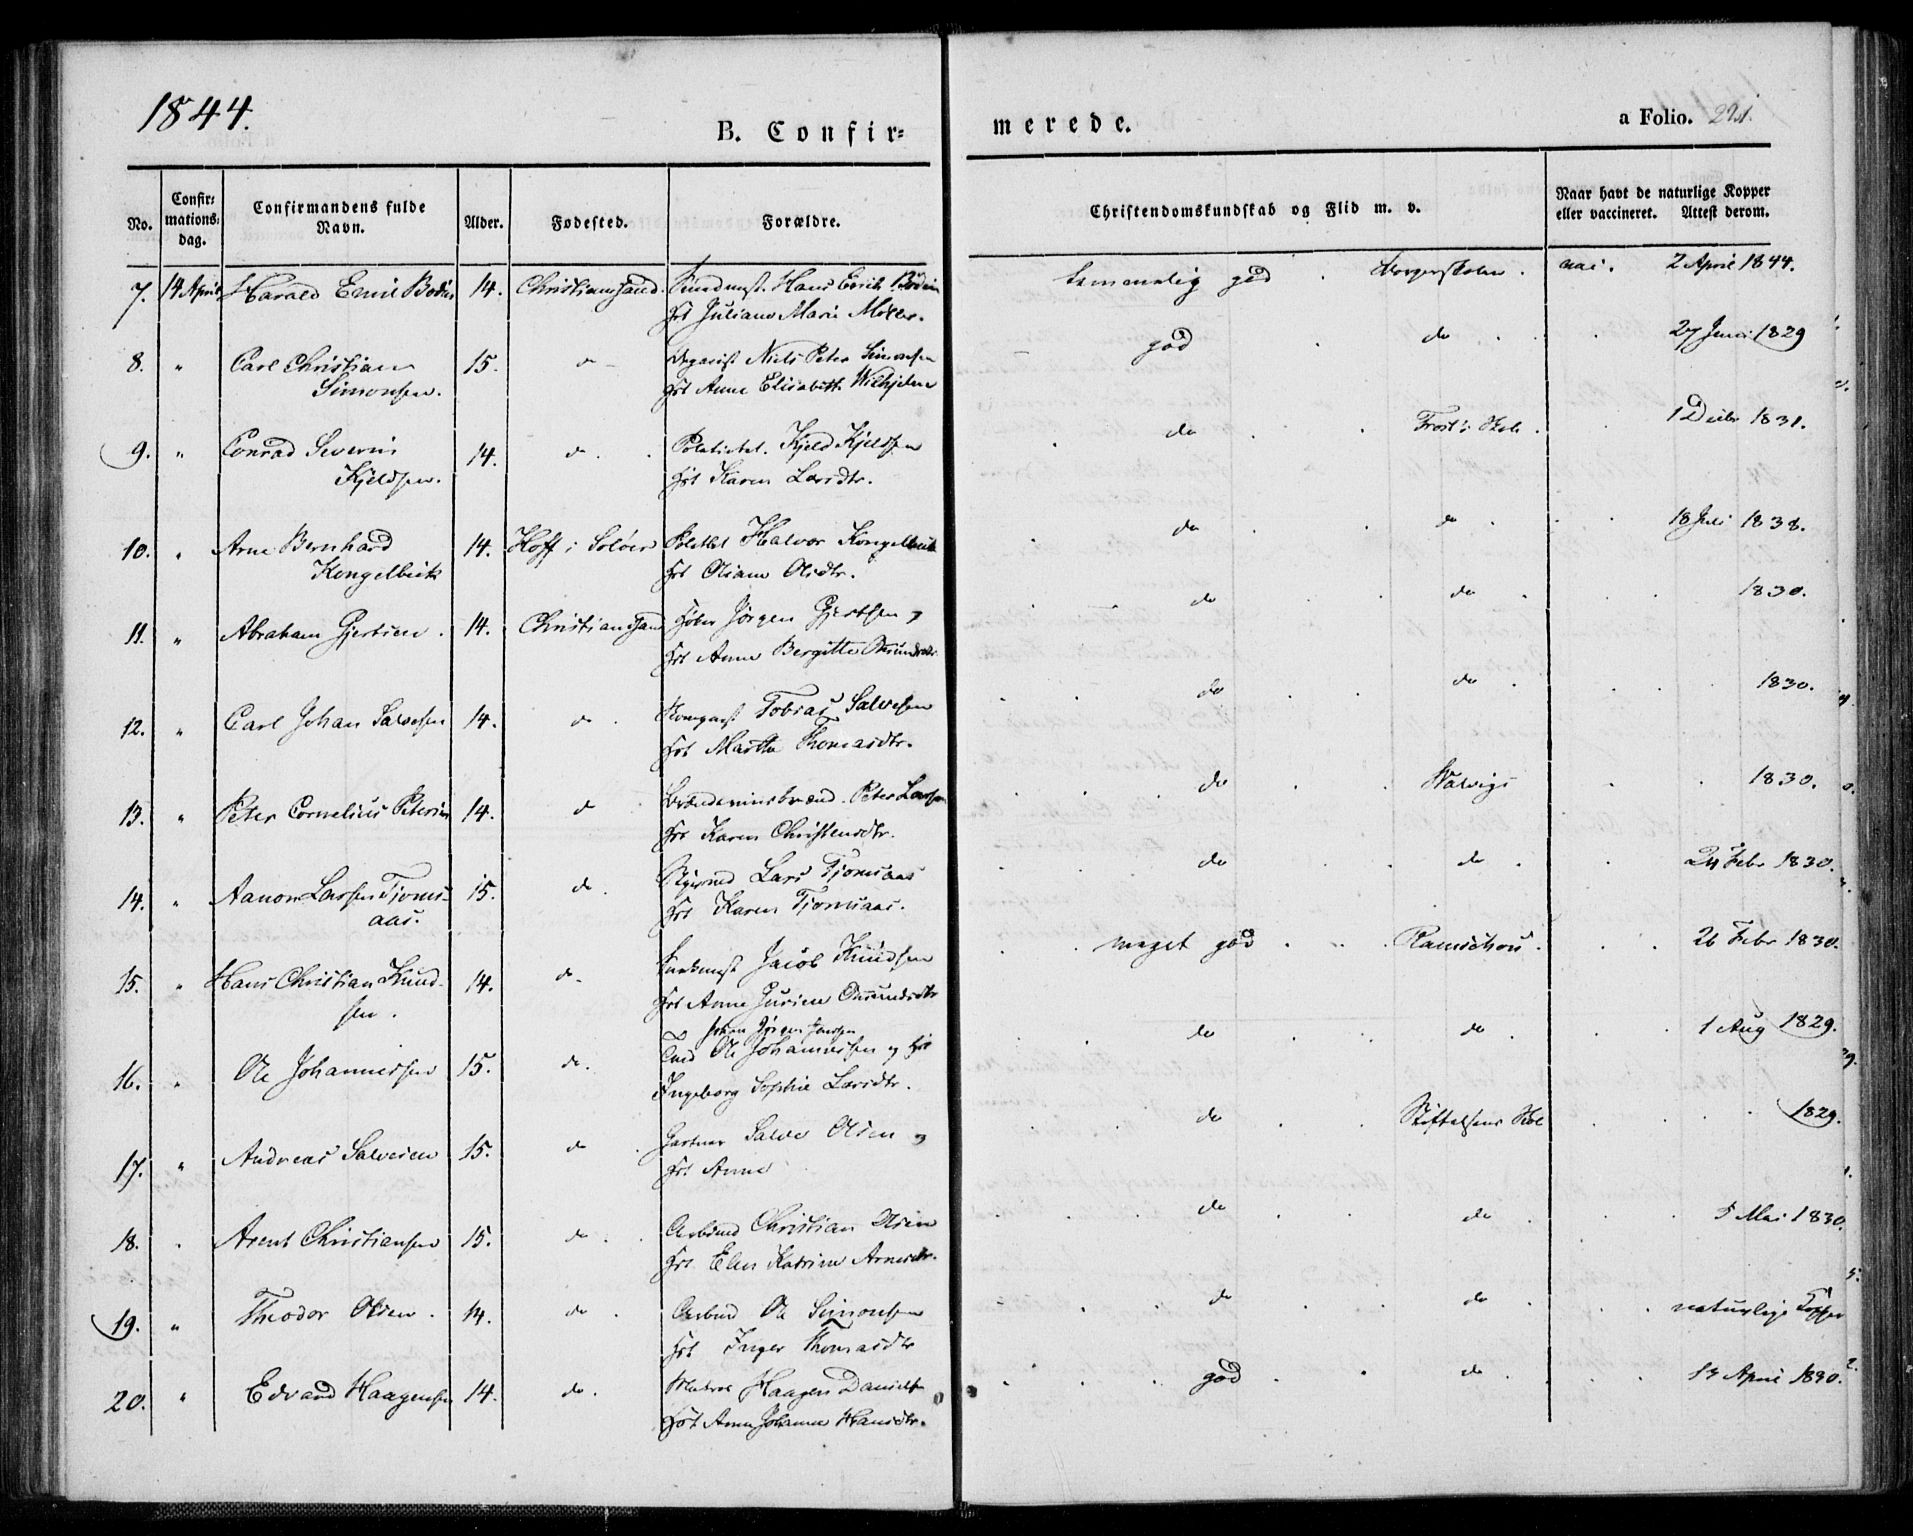 1844.
B. Confir=
merede.
a Folio. 221.
No. Confir= mations= dag. Confirmandens fulde Navn. Alder. Fødested. Forældre. Christendomskundskab og Flid m. v. Naar havt de naturlige Kopper eller vaccineret. Attest derom.
7. 14 April Harald Emil Bodin 14. Christiansand. Hans Erich Bodin temmelig god Borgerskolen. 2 April 1844.
Juliane Marie Møller.
8. " Carl Christian 15. do Niels Peter Simonsen god do 27 Juni 1829
Simonsen. Anne Elisabeth Wilhjelm
9. " Conrad Severin 14. do Kjeld Kjeldsen do Frost's Skole. 1 Decbr 1831.
Kjeldsen. Karen Larsdtr.
10. " Arne Bernhard 14. Hoff i Soløer Halvor Kongelbeck do do 18 Juli 1838.
Kongelbeck Oliane Olsdtr.
11. " Abraham Gjertsen. 14. Christiansand Jørgen Gjertsen og do do 1830.
Anne Bergitte
12. " Carl Johan Salvesen 14. do Tobias Salvesen do do 1830.
Marthe Thomasdtr.
13. " Peter Cornelius 14. do Peter Larsen do Walvigs 1830.
Karen Christensdtr.
14. " Aanon Larsen Tjoms- 15. do Lars Tjomsaas do do 24 Febr 1830.
aas. Karen Tjomsaas.
15. " Hans Christian Knud- 14. do Jacob Knudsen meget god Ramschous. 26 Febr 1830.
sen. Anne
Johan Jørgen Jensen
16. " Ole Johannessen 15. do. Ole Johannessen og do do 1 Aug 1829.
Ingeborg Sophie Larsdtr.
17. " Andreas Salvesen 15. do Gartner Salve Olsen og do Stiftelsens Skol 1829.
Anne
18. Arent Christiansen 15. do Christian Olsen do do 5 Mai 1830.
Elen Katrine Arnesdtr.
19. " Theodor Olsen. 14. do Ole Simonsen do do naturlige Kopper
Inger Thomasdtr
20. " Edvard Haagensen 14. do. Matros Haagen Danielsn god do 13 April 1830.
Anne Johanne Hansdtr.